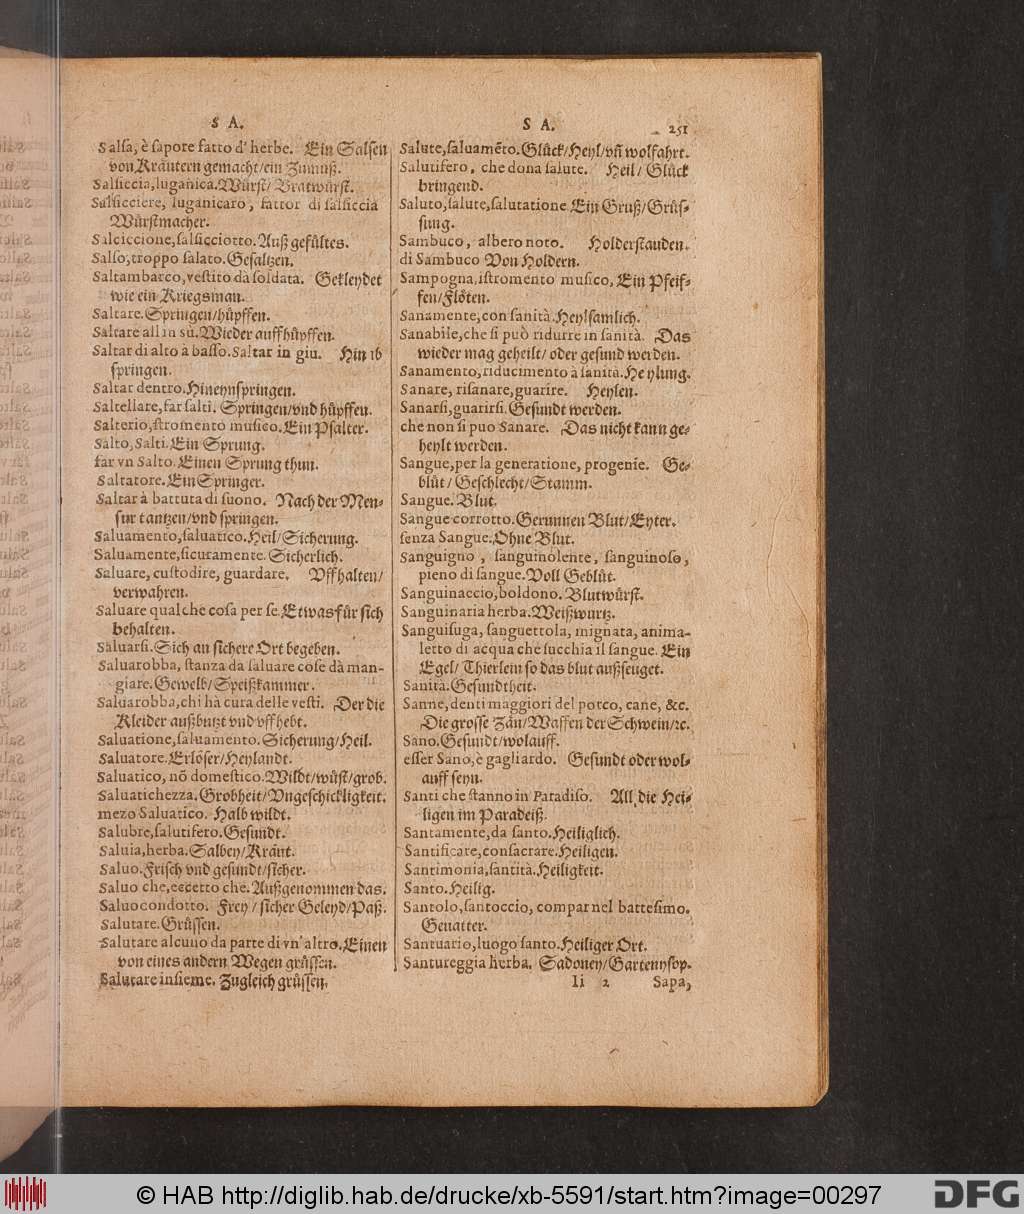 S A.
Salsa, è sapore fatto d' herbe. Ein Salsen
von Kräutern gemacht/ein Zumuß.
Salsiccia, luganica. Würst/ Bratwürst.
Salsicciere, luganicaro, fattor di salsiccia
Würstmacher.
Salciccione, salsicciotto. Auß gefültes.
Salso, troppo salato. Gesaltzen.
Saltambarco, vestito dà soldata. Gekleydet
wie ein Kriegsman.
Saltare. Springen/hüpffen.
Saltare all in sù. Wieder auffhüpffen.
Saltar di alto à basso. Saltar in giu. Hin ab
springen.
Saltar dentro. Hineynspringen.
Saltellare, far salti. Springen/vnd hüpffen.
Salterio, stromento musico. Ein Psalter.
Salto, Salti. Ein Sprung.
far vn Salto. Einen Sprung thun.
Saltatore. Ein Springer.
Saltar à battuta di suono. Nach der Men-
sur tantzen/vnd springen.
Saluamento, saluatico. Heil/Sicherung.
Saluamente, sicuramente. Sicherlich.
Saluare, custodire, guardare. Vffhalten/
verwahren.
Saluare qualche cosa per se. Etwas für sich
behalten.
Saluarsi. Sich an sichere Ort begeben.
Saluarobba, stanza da saluare cose dà man-
giare. Gewelb/Speißkammer.
Saluarobba, chi hà cura delle vesti. Der die
Kleider außbutzt vnd vffhebt.
Saluatione, saluamento. Sicherung/Heil.
Saluatore. Erlöser/Heylandt.
Saluatico, nō domestico. Wildt/wüst/grob.
Saluatichezza. Grobheit/Vngeschickligkeit.
mezo Saluatico. Halb wildt.
Salubre, salutifero. Gesundt.
Saluia, herba. Salbey/Kraut.
Saluo. Frisch vnd gesundt/sicher.
Saluo che, eccetto che. Außgenommen das.
Saluocondotto. Frey/ sicher Geleyd/Paß.
Salutare. Grüssen.
Salutare alcuno da parte di vn'altro. Einen
von eines andern Wegen grüssen.
Salutare insieme. Zugleich grüssen.
S A. 251
Salute, saluamēto. Glück/Heyl/vñ wolfahrt.
Salutifero, che dona salute. Heil/ Glück
bringend.
Saluto, salute, salutatione. Ein Gruß/Grüs-
sung.
Sambuco, albero noto. Holderstauden.
di Sambuco Von Holdern.
Sampogna, istromento musico, Ein Pfeif-
fen/Flöten.
Sanamente, con sanità. Heylsamlich.
Sanabile, che si può ridurre in sanità. Das
wieder mag geheilt/ oder gesund werden.
Sanamento, riducimento à sanità. Heylung.
Sanare, risanare, guarire. Heylen.
Sanarsi, guarirsi. Gesundt werden.
che non si puo Sanare. Das nicht kann ge-
heylt werden.
Sangue, per la generatione, progenie. Ge-
blüt/ Geschlecht/Stamm.
Sangue. Blut.
Sangue corrotto. Gerunnen Blut/Eyter.
senza Sangue. Ohne Blut.
Sanguigno, sanguinolente, sanguinoso,
pieno di sangue. Voll Geblüt.
Sanguinaccio, boldono. Blutwürst.
Sanguinaria herba. Weißwurtz.
Sanguisuga, sanguettola, mignata, anima-
letto di acqua che succhia il sangue. Ein
Egel/ Thierlein so das blut außseuget.
Sanità. Gesundtheit.
Sanne, denti maggiori del porco, cane, &c.
Die grosse Zän/Waffen der Schwein/ꝛc.
Sano. Gesundt/wolauff.
esser Sano, è gagliardo. Gesundt oder wol-
auff seyn.
Santi che stanno in Paradiso. All die Hei-
ligen im Paradeiß.
Santamente, da santo. Heiliglich.
Santificare, consacrare. Heiligen.
Santimonia, santità. Heiligkeit.
Santo. Heilig.
Santolo, santoccio, compar nel battesimo.
Geuatter.
Santuario, luogo santo. Heiliger Ort.
Santureggia herba. Sadoney/Gartenysop.
Ii 2 Sapa,
© HAB http://diglib.hab.de/drucke/xb-5591/start.htm?image=00297
DFG